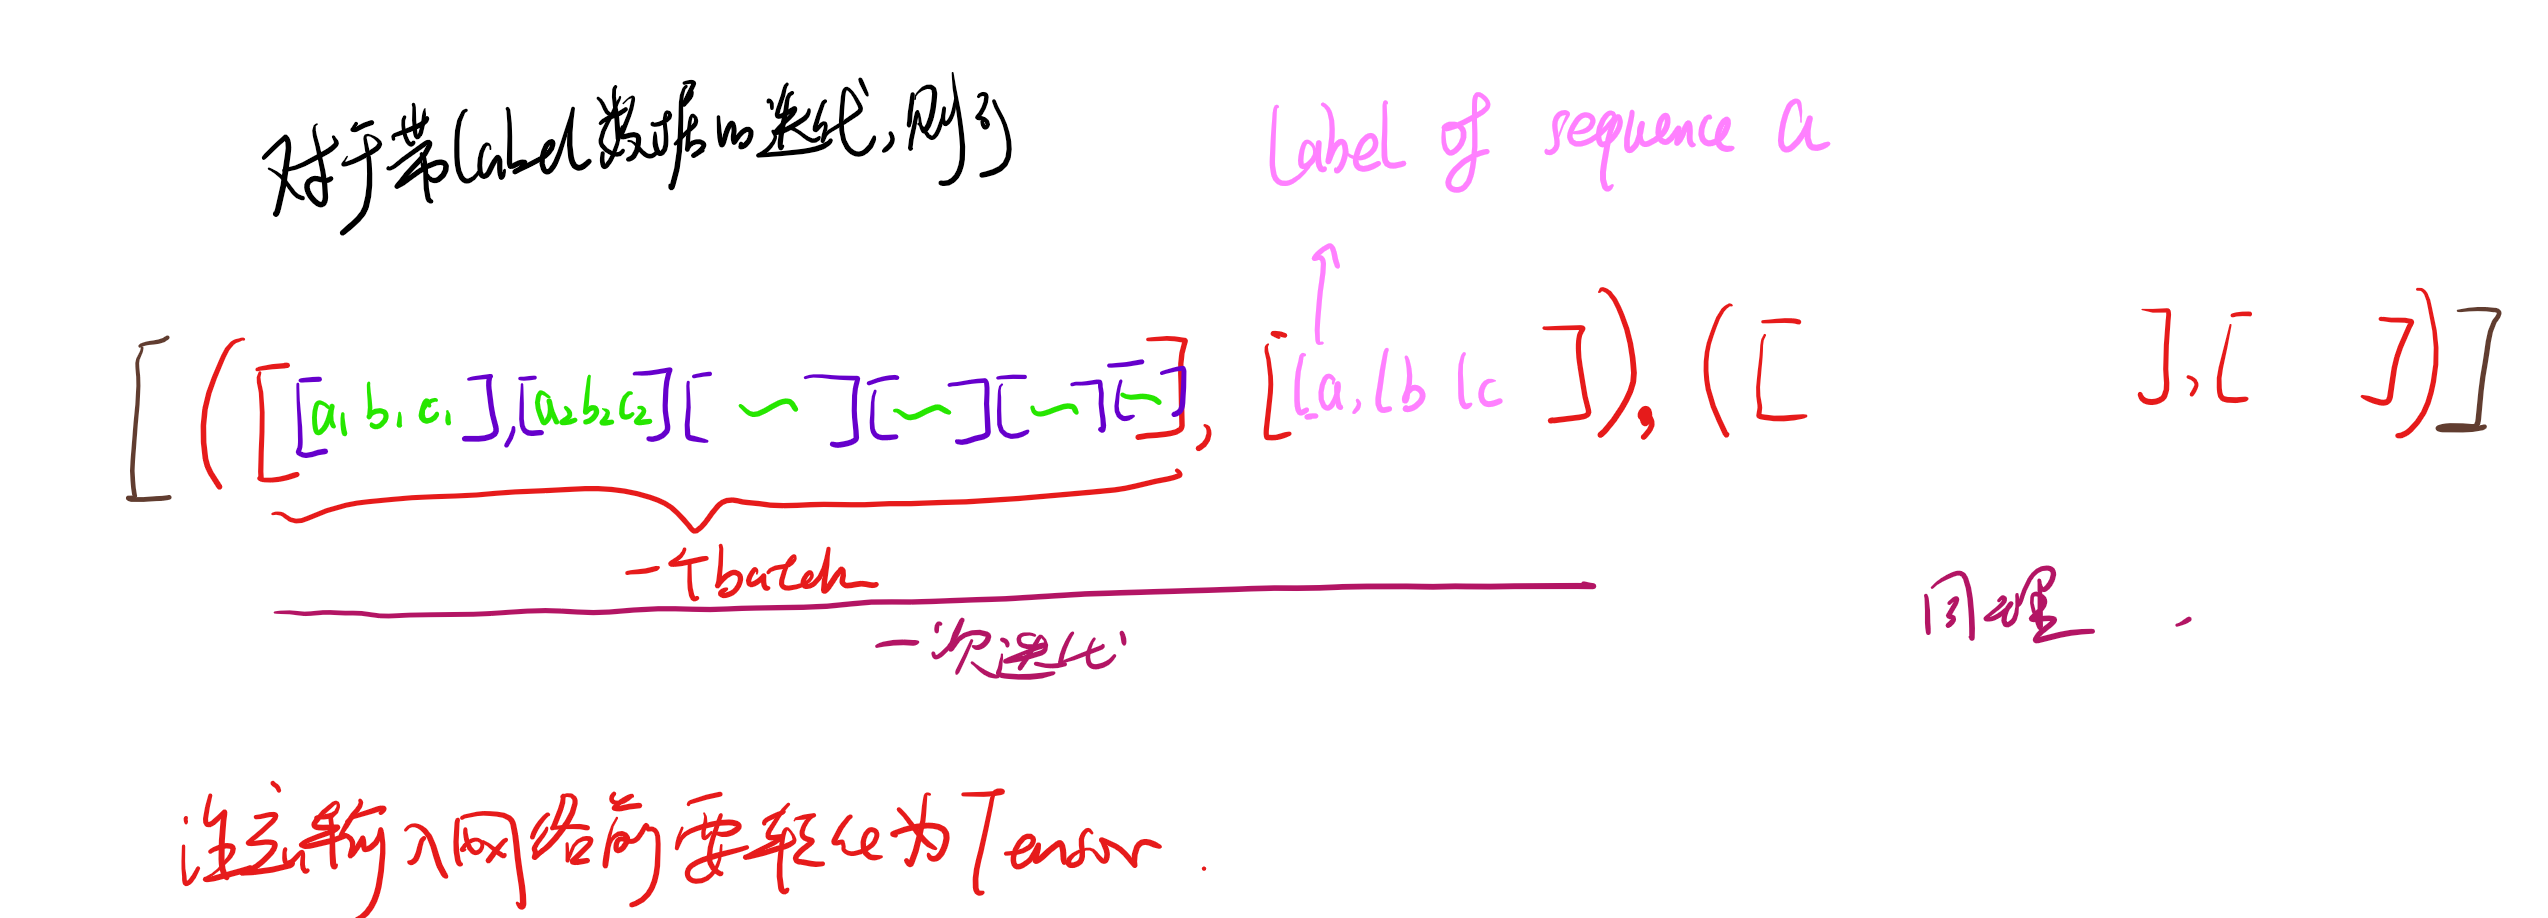 对于带label数据的迭代,则为
label of sequence a
[([[a₁ b₁ c₁],[a₂ b₂ c₂][ ~ ][ ~ ][ ~ ][ ~ ]], [la, lb lc ]), ([ ], [ ])]
一个batch
一次迭代
同理.
注意输入网络前要转化为Tensor.